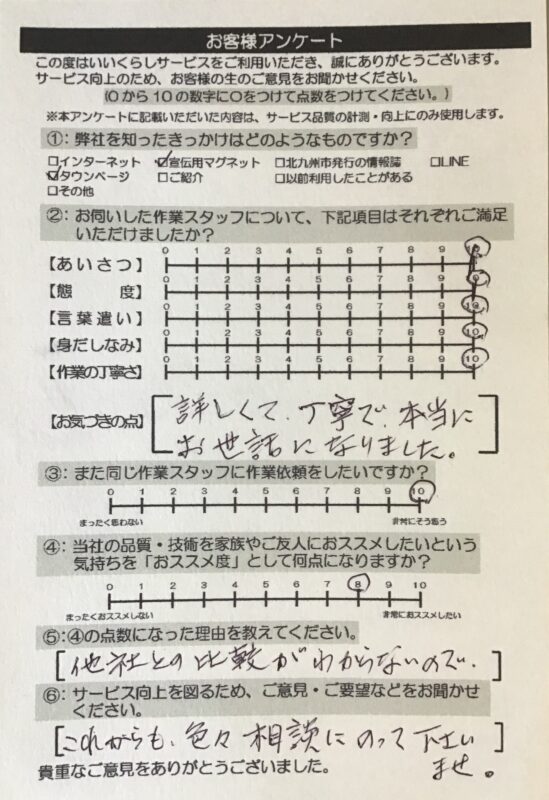 お客様アンケート
この度はいいくらしサービスをご利用いただき、誠にありがとうございます。
サービス向上のため、お客様の生のご意見をお聞かせください。
(0から10の数字に○をつけて点数をつけてください。)
※本アンケートに記載いただいた内容は、サービス品質の計測・向上にのみ使用します。
①：弊社を知ったきっかけはどのようなものですか？
□インターネット ☑宣伝用マグネット □北九州市発行の情報誌 □LINE
☑タウンページ □ご紹介 □以前利用したことがある
□その他
②：お伺いした作業スタッフについて、下記項目はそれぞれご満足
いただけましたか？
0 1 2 3 4 5 6 7 8 9 10
【あいさつ】
0 1 2 3 4 5 6 7 8 9 10
【態　度】
0 1 2 3 4 5 6 7 8 9 10
【言葉遣い】
0 1 2 3 4 5 6 7 8 9 10
【身だしなみ】
0 1 2 3 4 5 6 7 8 9 10
【作業の丁寧さ】
詳しくて、丁寧で、本当に
【お気づきの点】
お世話になりました。
③：また同じ作業スタッフに作業依頼をしたいですか？
0 1 2 3 4 5 6 7 8 9 10
まったく思わない 非常にそう思う
④：当社の品質・技術を家族やご友人におススメしたいという
気持ちを「おススメ度」として何点になりますか？
0 1 2 3 4 5 6 7 8 9 10
まったくおススメしない 非常におススメしたい
⑤：④の点数になった理由を教えてください。
[他社との比較がわからないので、]
⑥：サービス向上を図るため、ご意見・ご要望などをお聞かせ
ください。
[これからも、色々相談にのって下さい]
ませ。
貴重なご意見をありがとうございました。